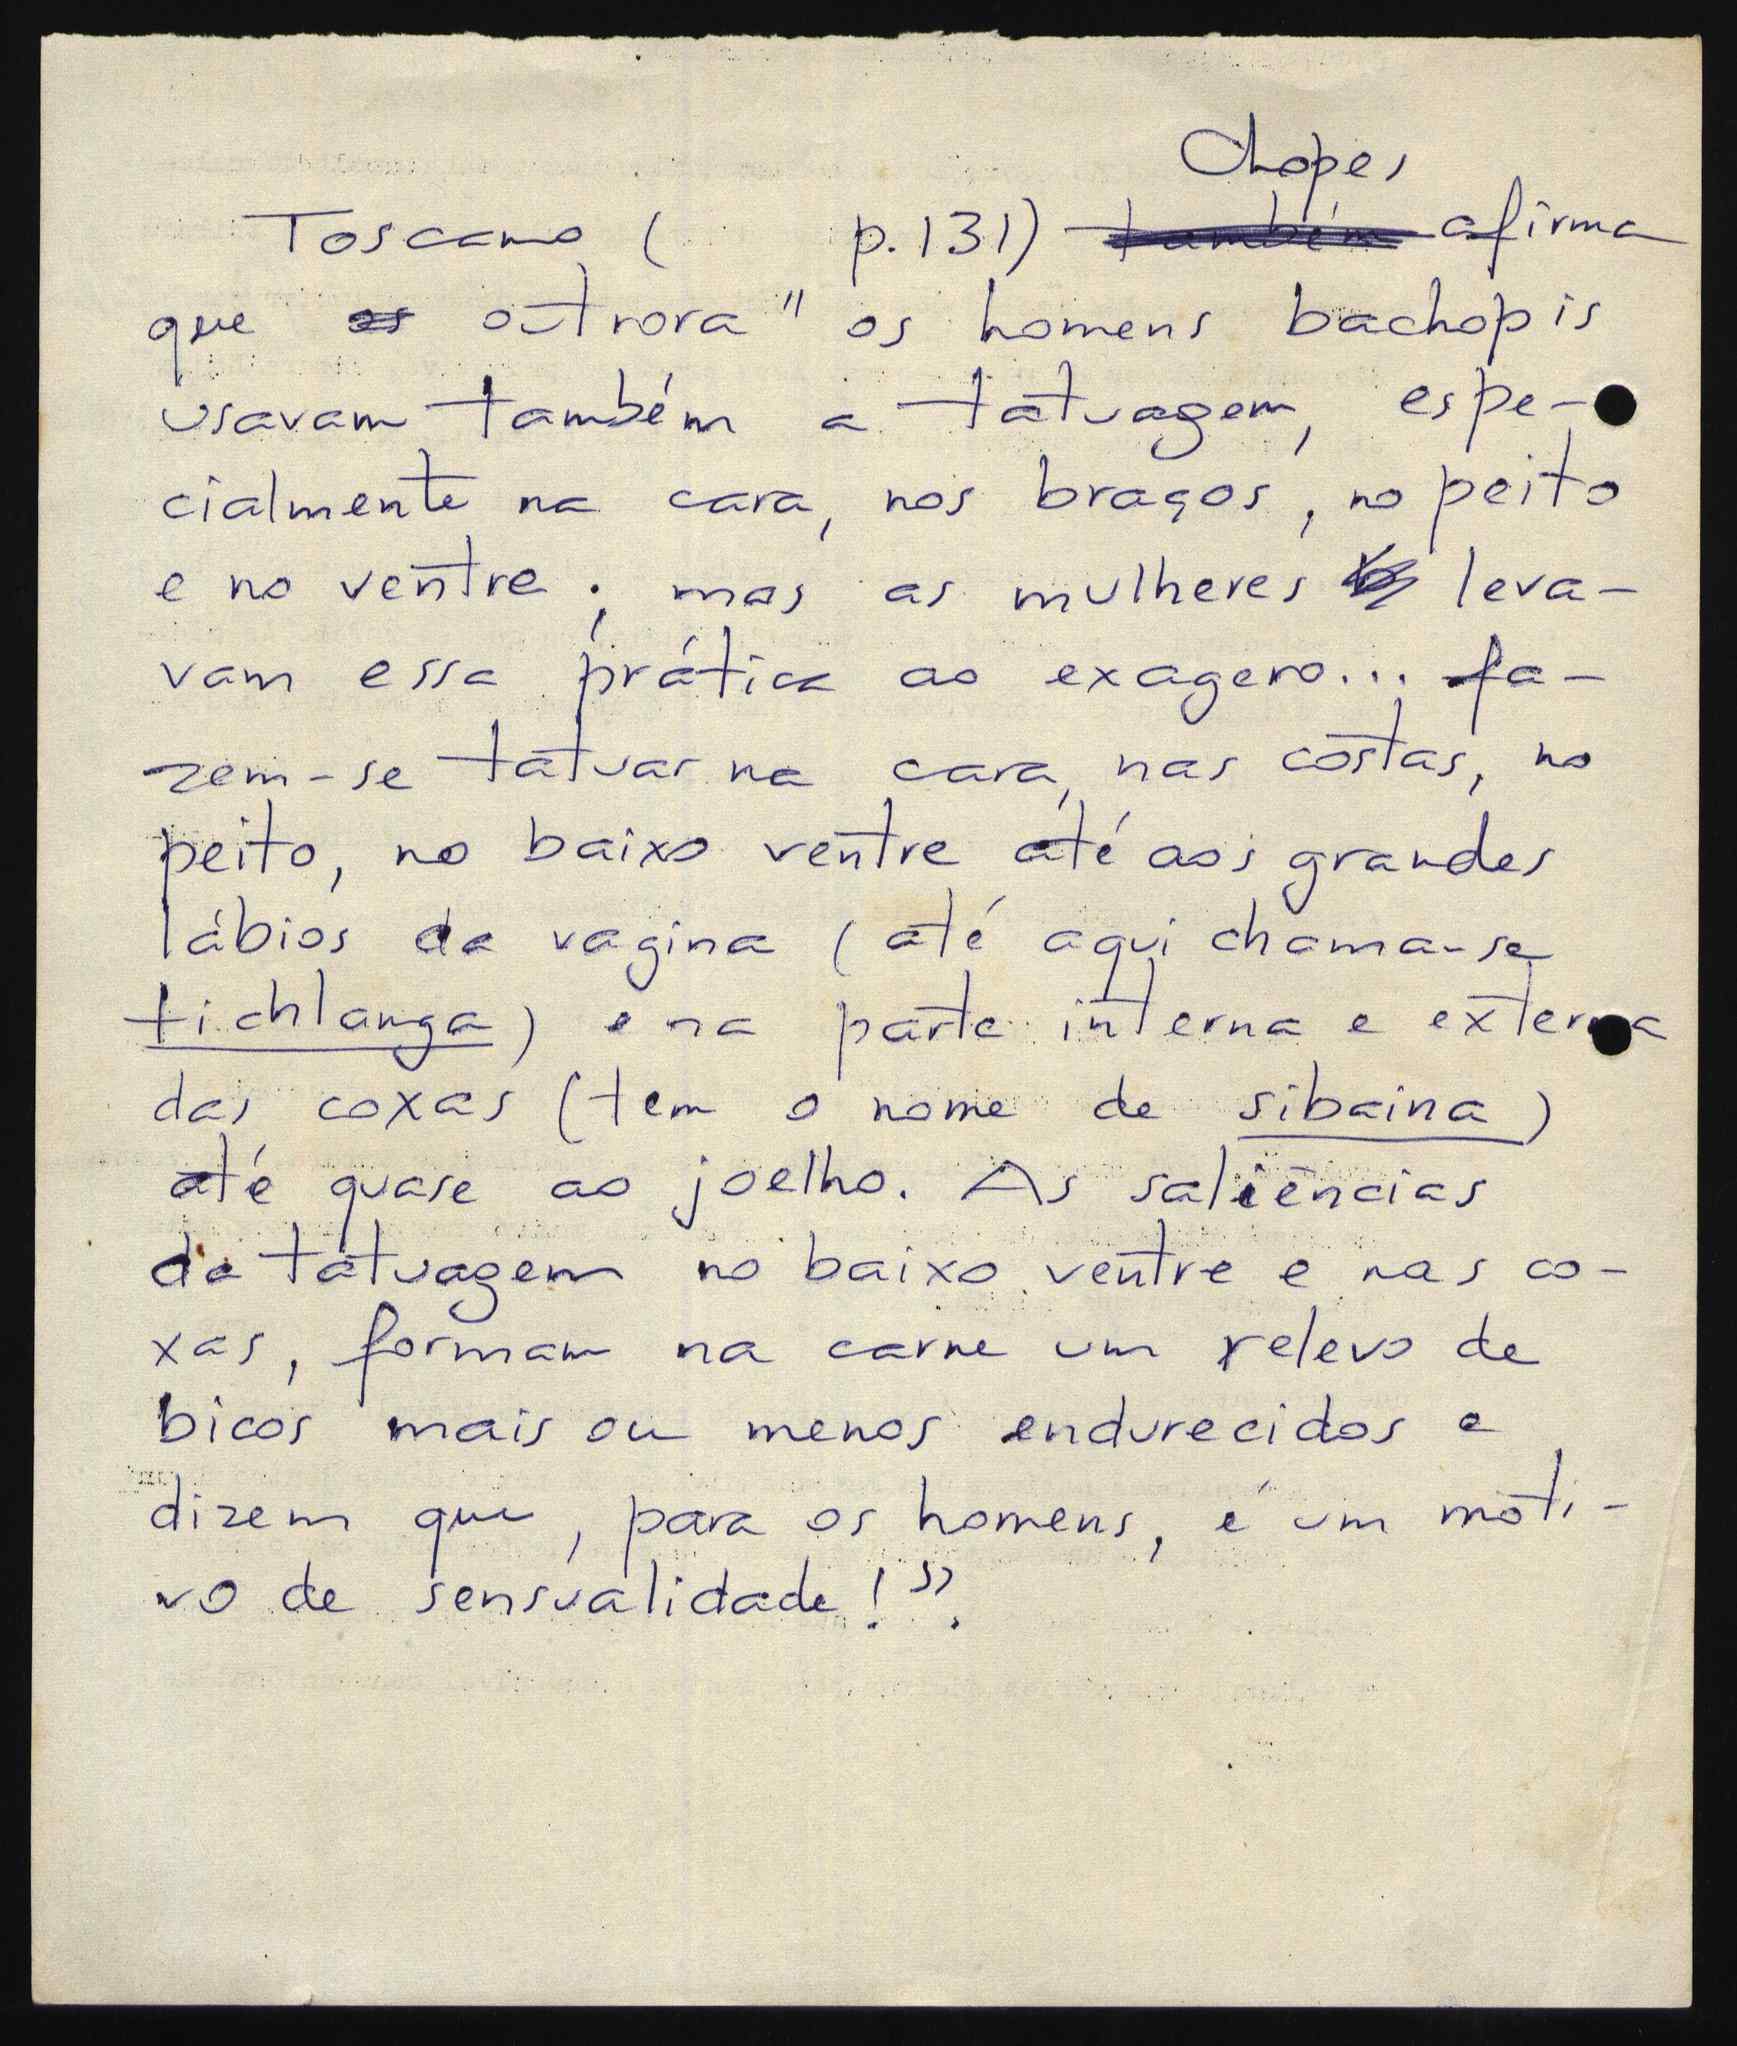 Chopes
Toscano ( p. 131) também afirma
que os outrora "os homens bachopis
usavam também a tatuagem, espe-
cialmente na cara, nos braços, no peito
e no ventre; mas as mulheres leva-
vam essa prática ao exagero... fa-
zem-se tatuar na cara, nas costas, no
peito, no baixo ventre até aos grandes
lábios da vagina (até aqui chama-se
tichlanga) e na parte interna e externa
das coxas (tem o nome de sibaina)
até quase ao joelho. As saliências
da tatuagem no baixo ventre e nas co-
xas, formam na carne um relevo de
bicos mais ou menos endurecidos e
dizem que, para os homens, é um moti-
vo de sensualidade!".